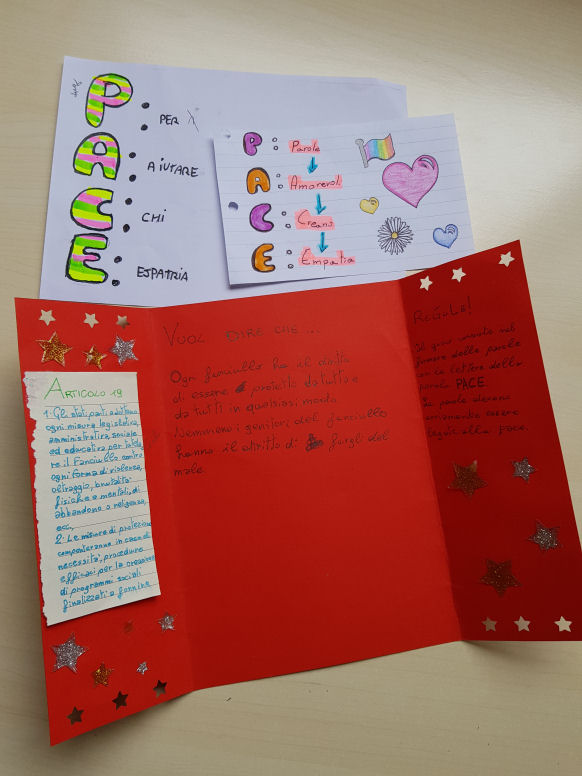 P: PER
A: AIUTARE
C: CHI
E: ESPATRIA
P: Parole
A: Amorevoli
C: Creano
E: Empatia
ARTICOLO 19
1. Gli stati parti adottano
ogni misura legislativa,
amministrativa, sociale
ed educativa per tutela
re il Fanciullo contro
ogni forma di violenza,
oltraggio, brutalità
fisiche o mentali, di
abbandono o negligenza,
ecc.
2. Le misure di protezione
comporteranno in caso di
necessità, procedure
efficaci per la creazione
di programmi sociali
finalizzati a fornire
VUOL DIRE CHE...
Ogni fanciullo ha il diritto
di essere protetto da tutto e
da tutti in qualsiasi modo.
Nemmeno i genitori del fanciullo
hanno il diritto di fargli del
male.
REGOLE!
Il gioco consiste nel
formare delle parole
con le lettere della
parola PACE
Le parole devono
essere
legate alla PACE.